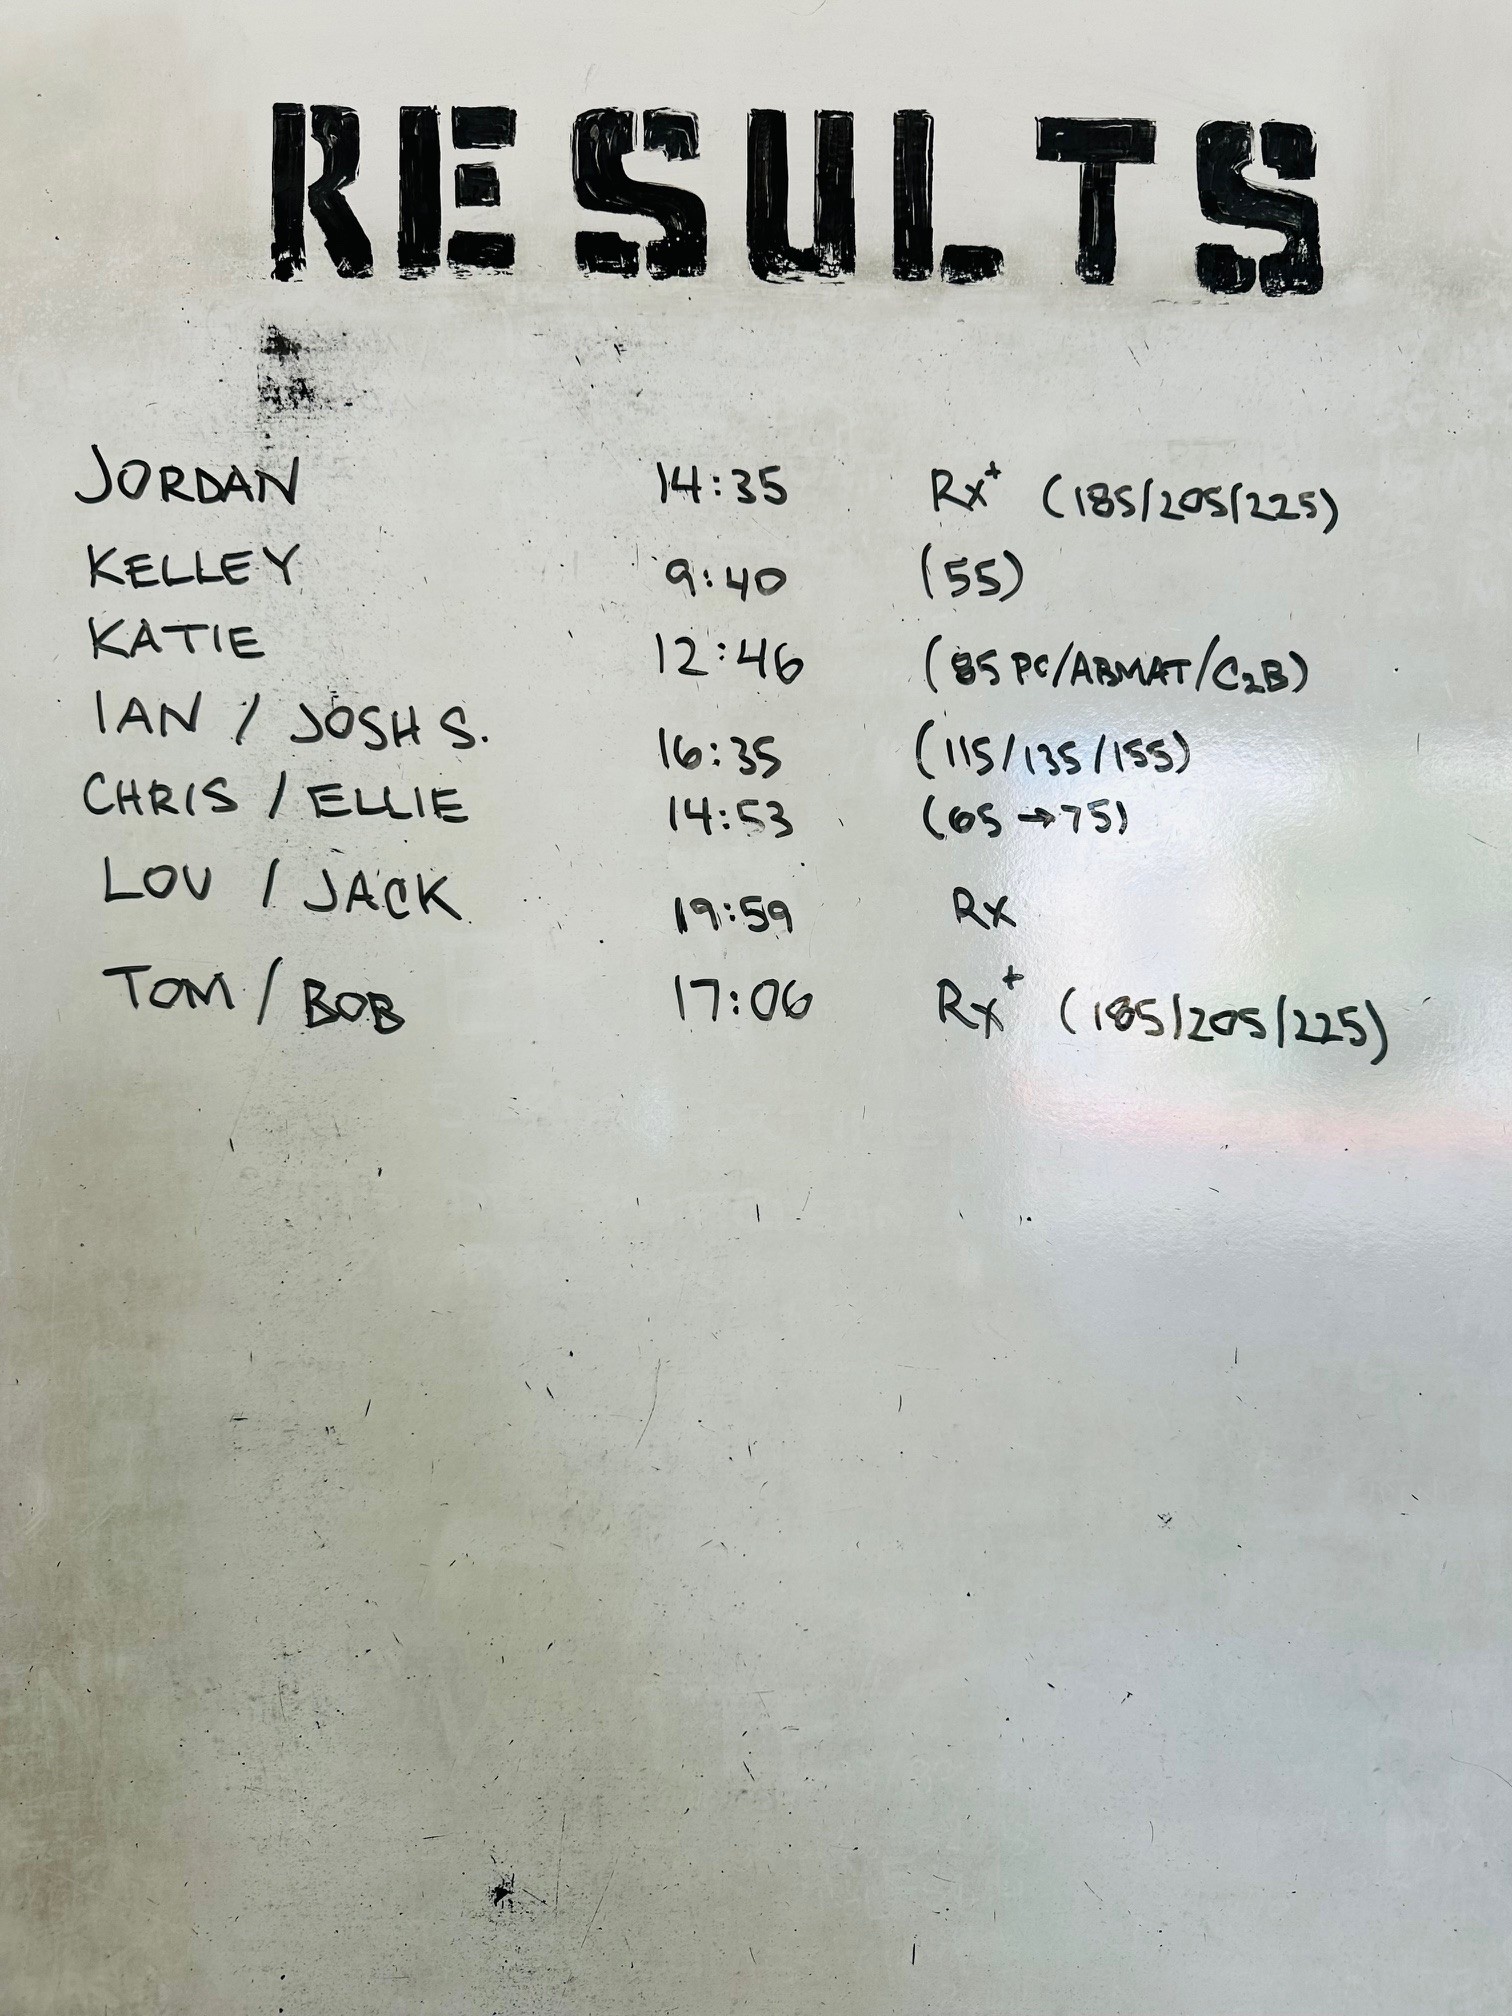 RESULTS
JORDAN 14:35 Rx+ (185/205/225)
KELLEY 9:40 (55)
KATIE 12:46 (85 PC/ABMAT/C2B)
IAN / JOSH S. 16:35 (115/135/155)
CHRIS / ELLIE 14:53 (65→75)
LOU / JACK 19:59 Rx
TOM / BOB 17:06 Rx+ (185/205/225)